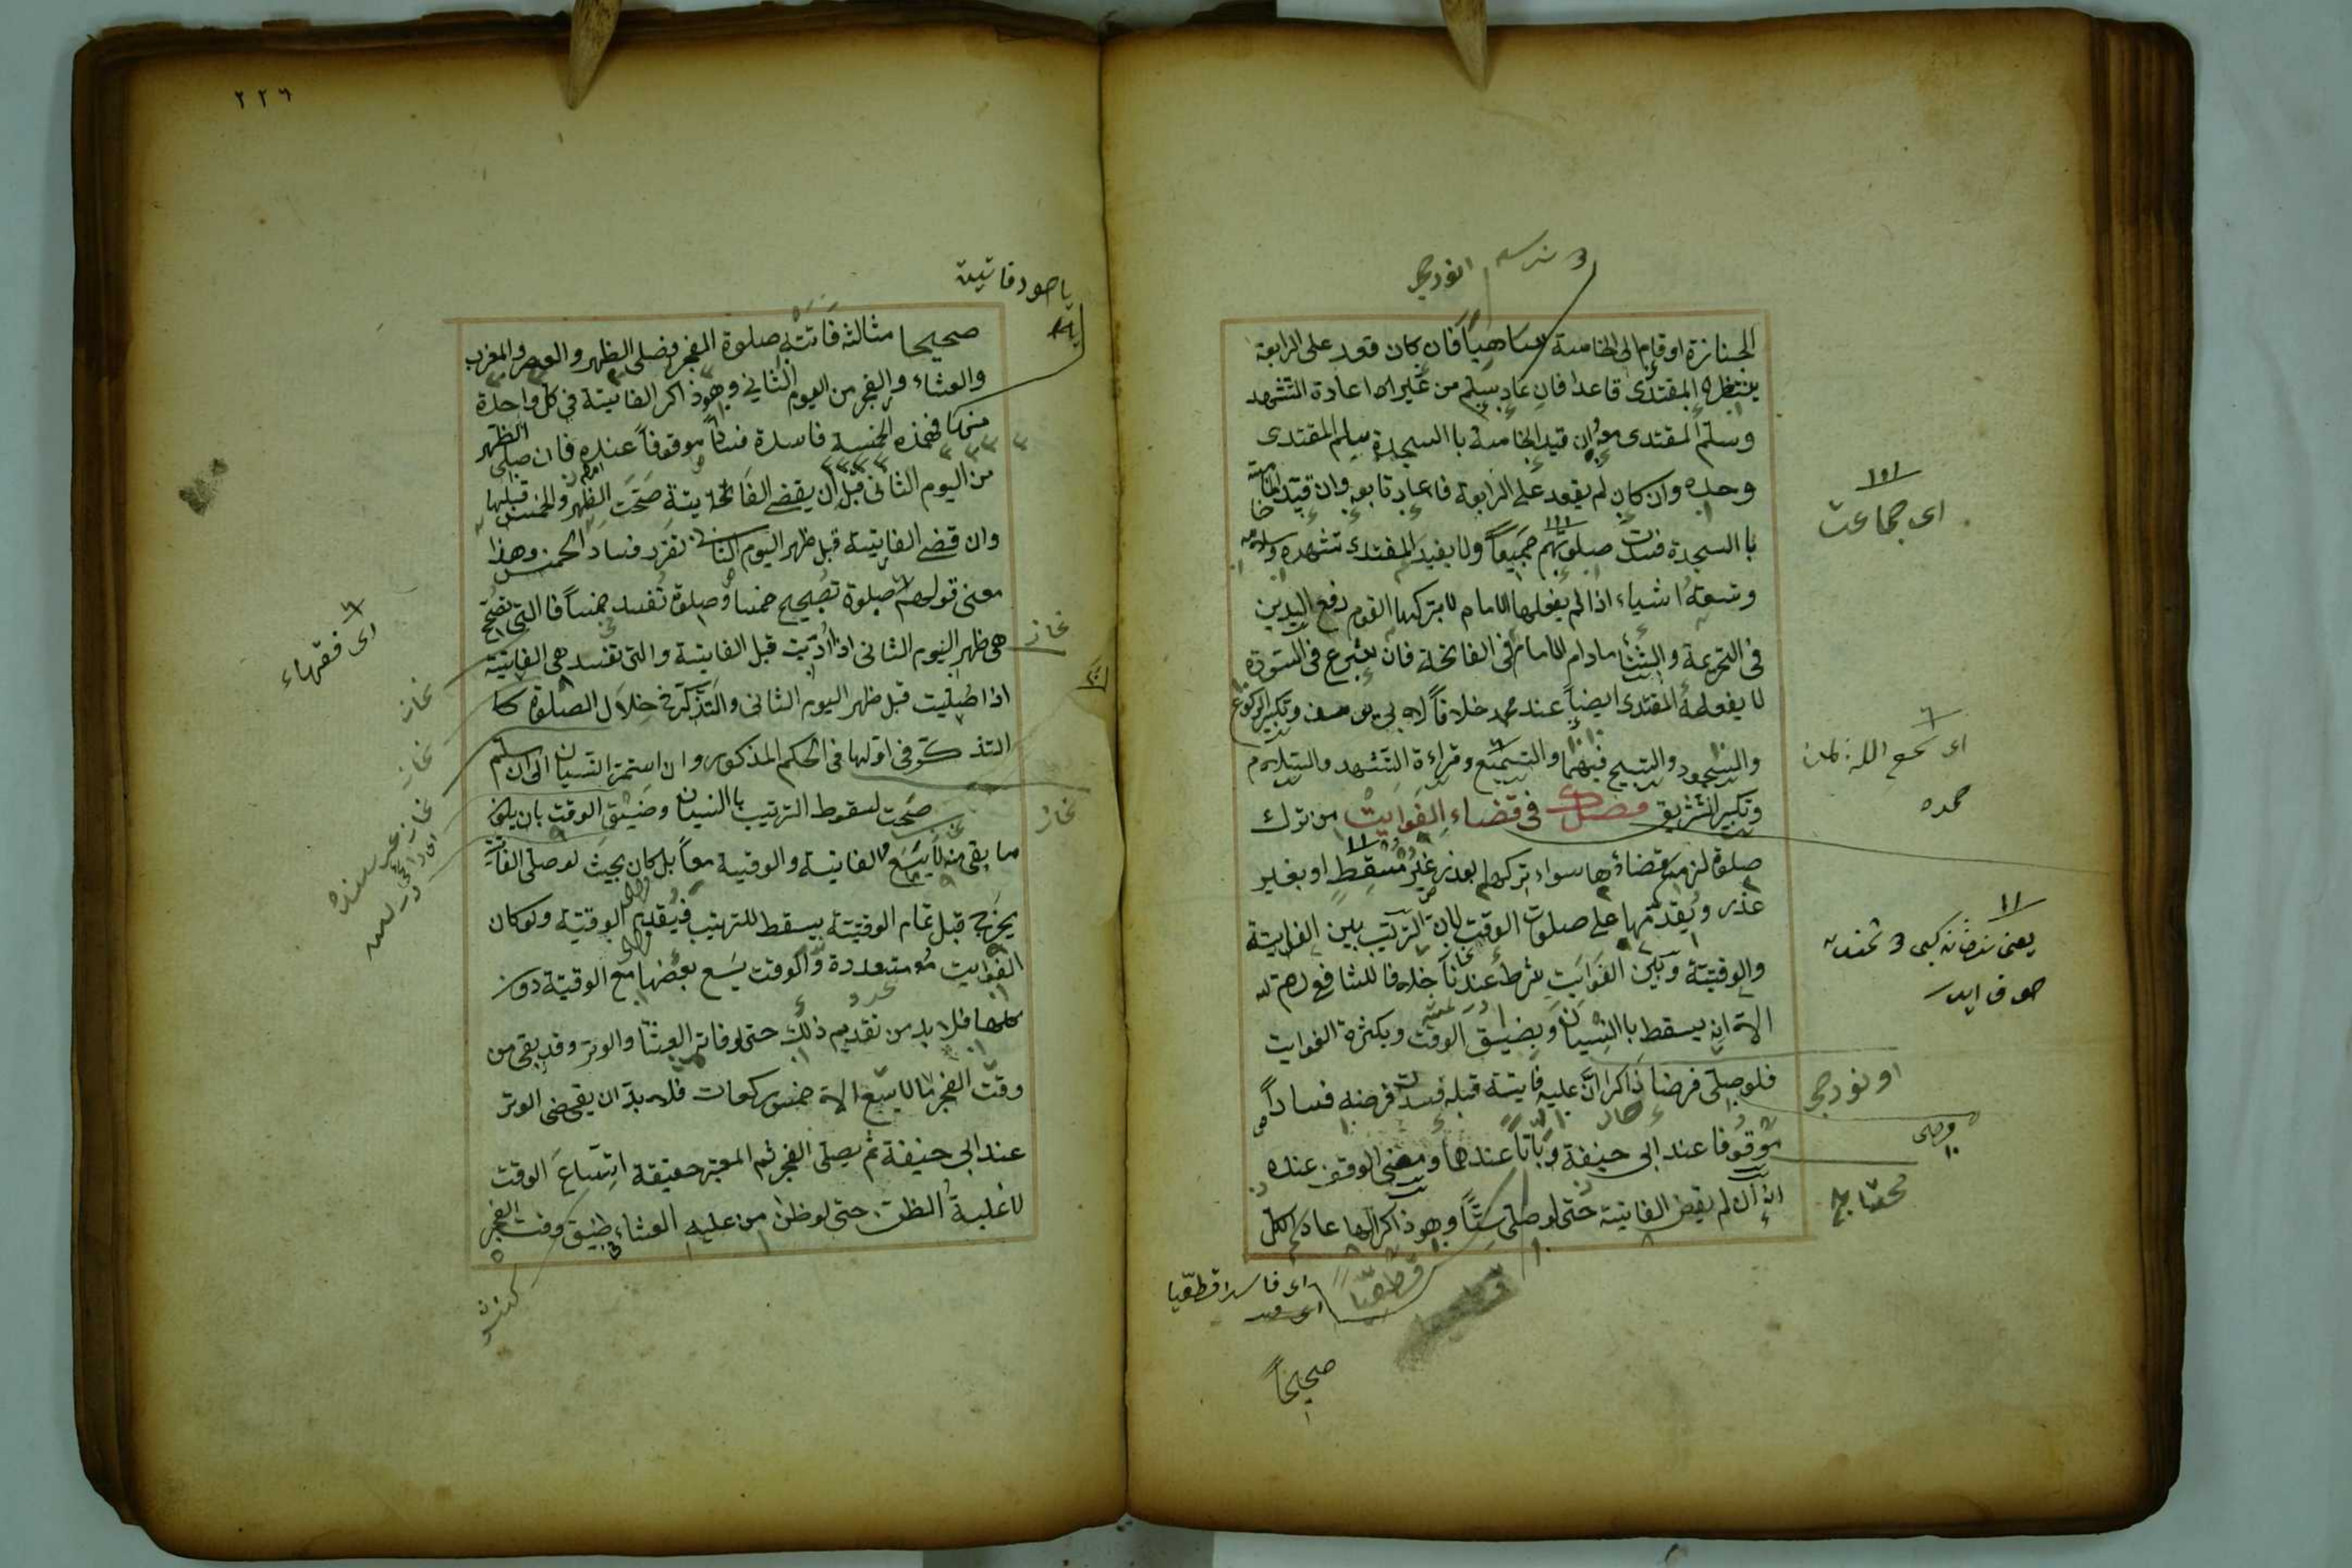 الجنازة او قام الى الخامسة ساهياً فان كان قعد على الرابعة
ينتظره المقتدى قاعدا فان عاد يسلم من غير اعادة التشهد
وسلم المقتدى معه وان قيد الخامسة باالسجدة يسلم المقتدى
وحده وان كان لم يقعد على الرابعة فان عاد تابعه وان قيد الخامسة
باالسجدة فسدت صلوتهم جميعاً ولا يفيد المقتدى تشهده وسلامه
وتسعة اشياء اذا لم يفعلها الامام لا يتركها القوم رفع اليدين
فى التحريمة والثنا مادام الامام فى الفاتحة فان شرع فى السورة
لا يفعله المقتدى ايضاً عند محمد خلافاً لابى يوسف وتكبير الركوع
والسجود والتسبيح فيهما والتسميع وقراءة التشهد والسلام
وتكبير التشريق فصل فى قضاء الفوايت من ترك
صلوة لزمه قضاؤها سواء تركها بعذر غير مسقط او بغير
عذر ويقدمها على صلوت الوقت لان الترتيب بين الفايتة
والوقتية وبين الفوايت شرط عندنا خلافا للشافعى رحمه الله
الا انه يسقط باالنسيان وبضيق الوقت وبكثرة الفوايت
فلو صلى فرضا ذاكرا ان عليه فايتة قبله فسد فرضه فساداً
موقوفا عند ابى حنيفة وباتاً عندهما ومعنى الوقف عنده
انه ان لم يقض الفايتة حتى لو صلى ستاً وهو ذاكر لها عاد الكل
صحيحاً
اى جماعت
اى سمع الله لمن
حمده
او نودجى
محتاج
اى فاسدا قطعيا
قطعيّا
٢٢٦
صحيحا مثاله فاتته صلوة الفجر فصلى الظهر والعصر والمغرب
والعشاء والفجر من اليوم الثاني وهو ذاكر الفايتة فى كل واحدة
منها فهذه الخمسة فاسدة فسادا موقوفاً عنده فان صلى الظهر
من اليوم الثانى قبل ان يقضى الفايتة صحت الظهر والخمس قبلها
وان قضى الفايتة قبل ظهر اليوم الثانى تقرر فساد الخمس وهذا
معنى قولهم صلوة تصحيح خمسا وصلوة تفسد خمساً فا التى تصحح
هى ظهر اليوم الثانى اذا أديت قبل الفايتة والتى تفسد هى الفايتة
اذا صليت قبل ظهر اليوم الثانى والتذكر فى خلال الصلوة كا
التذكر فى اولها فى الحكم المذكور وان استمر النسيان الى ان سلم
صحت لسقوط الترتيب باالنسيان وضيق الوقت بان يكون
ما بقى منه لا يسع الفايتة والوقتية معاً بل كان بحيث لو صلى الفايتة
يخرج قبل تمام الوقتية يسقط للترتيب فيقدم الوقتية ولو كان
الفوايت متعددة والوقت يسع بعضها مع الوقتية دون
كلها فلا بد من تقديم ذلك حتى لو فاته العشا والوتر وقد بقى من
وقت الفجر ما لا يسع الا خمس ركعات فلا بد ان يقضى الوتر
عند ابى حنيفة ثم يصلى الفجر ثم المعتبر حقيقة اتساع الوقت
لا غلبة الظن حتى لو ظن من عليه العشاء ضيق وقت الفجر
اى فقهاء
نماز
نماز
نماز
نماز